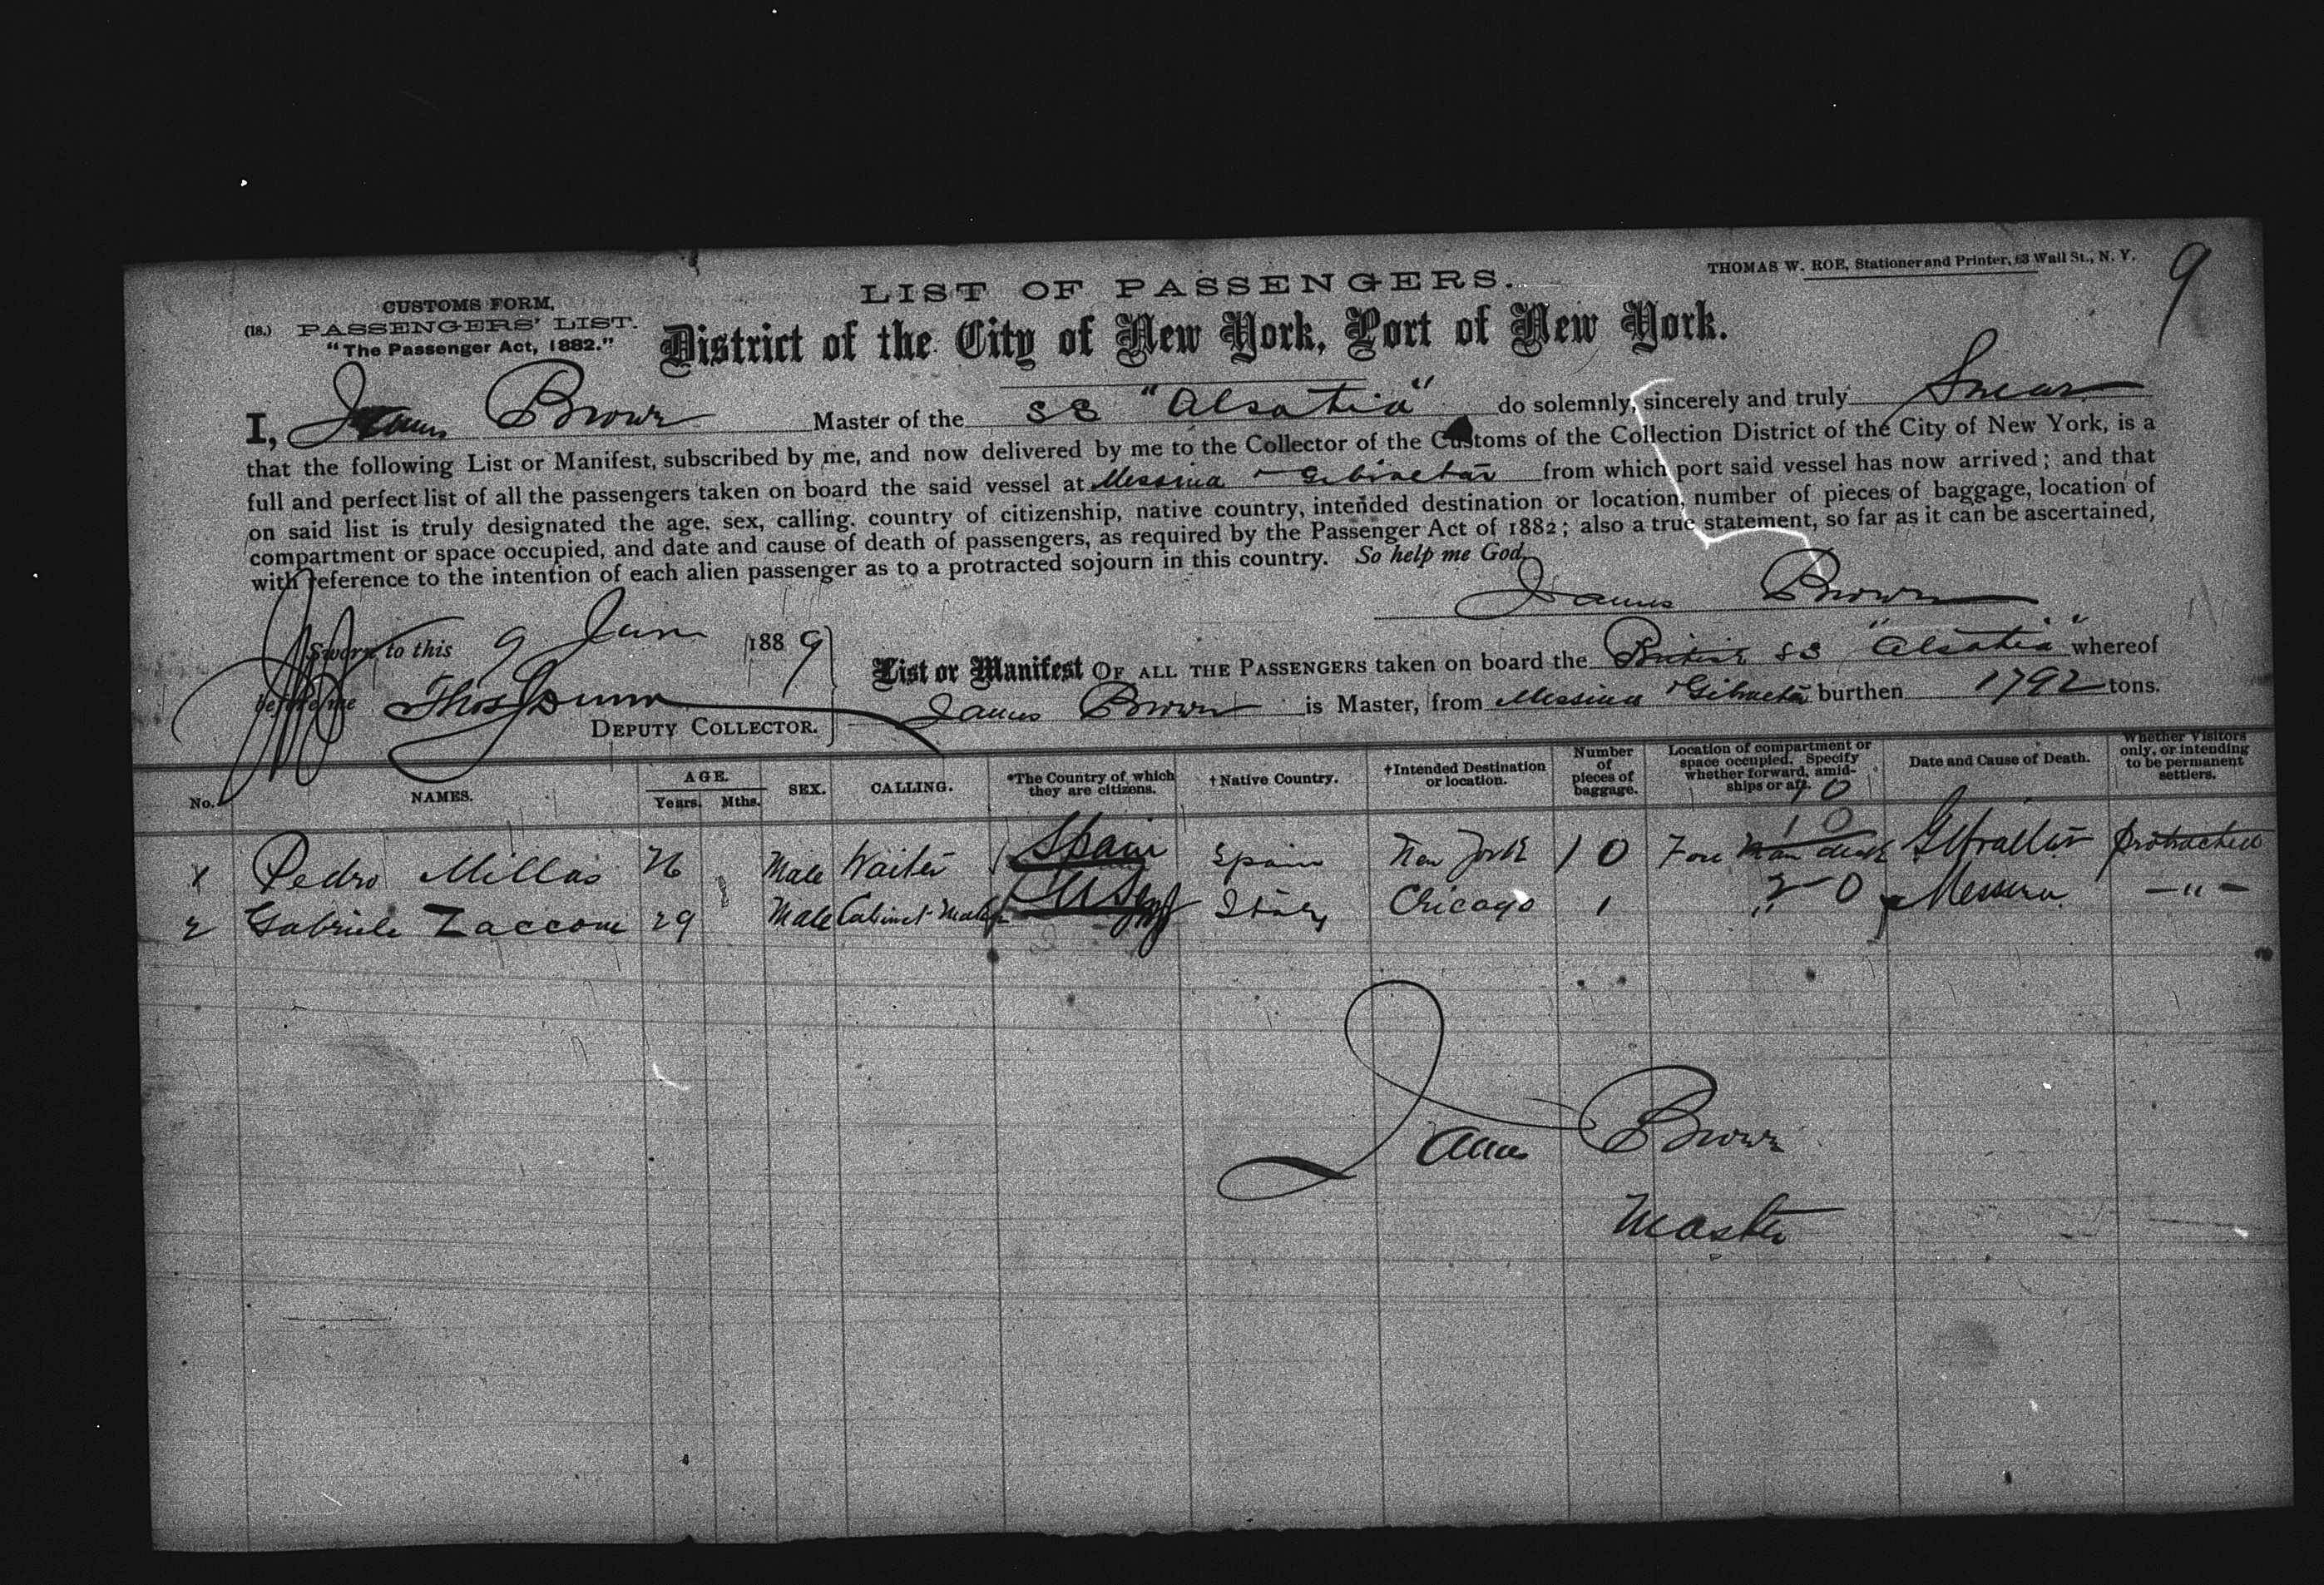 THOMAS W. ROE, Stationer and Printer, 63 Wall St., N. Y.
9
LIST OF PASSENGERS.
CUSTOMS FORM,
(18.) PASSENGERS' LIST.
"The Passenger Act, 1882."
District of the City of New York, Port of New York.
I, James Brown Master of the SS "Alsatia" do solemnly, sincerely and truly Swear
that the following List or Manifest, subscribed by me, and now delivered by me to the Collector of the Customs of the Collection District of the City of New York, is a
full and perfect list of all the passengers taken on board the said vessel at Messina Gibraltar from which port said vessel has now arrived; and that
on said list is truly designated the age, sex, calling, country of citizenship, native country, intended destination or location, number of pieces of baggage, location of
compartment or space occupied, and date and cause of death of passengers, as required by the Passenger Act of 1882; also a true statement, so far as it can be ascertained,
with reference to the intention of each alien passenger as to a protracted sojourn in this country. So help me God.
James Brown
Sworn to this 9 Jan 1889
before me Thos Dunn
DEPUTY COLLECTOR.
List or Manifest OF ALL THE PASSENGERS taken on board the British SS "Alsatia" whereof
James Brown is Master, from Messina Gibraltar burthen 1792 tons.
No. NAMES. AGE. Years. Mths. SEX. CALLING. *The Country of which they are citizens. †Native Country. †Intended Destination or location. Number of pieces of baggage. Location of compartment or space occupied. Specify whether forward, amidships or aft. Date and Cause of Death. Whether Visitors only, or intending to be permanent settlers.
10
10
Pedro Millas 26 Male Waiter Spain Spain New York 1 0 Fore Gibraltar protracted
2 Gabriele Zaccone 29 Male Cabinet Maker Italy Chicago 1 " 2 0 Messina - " -
James Brown
Master